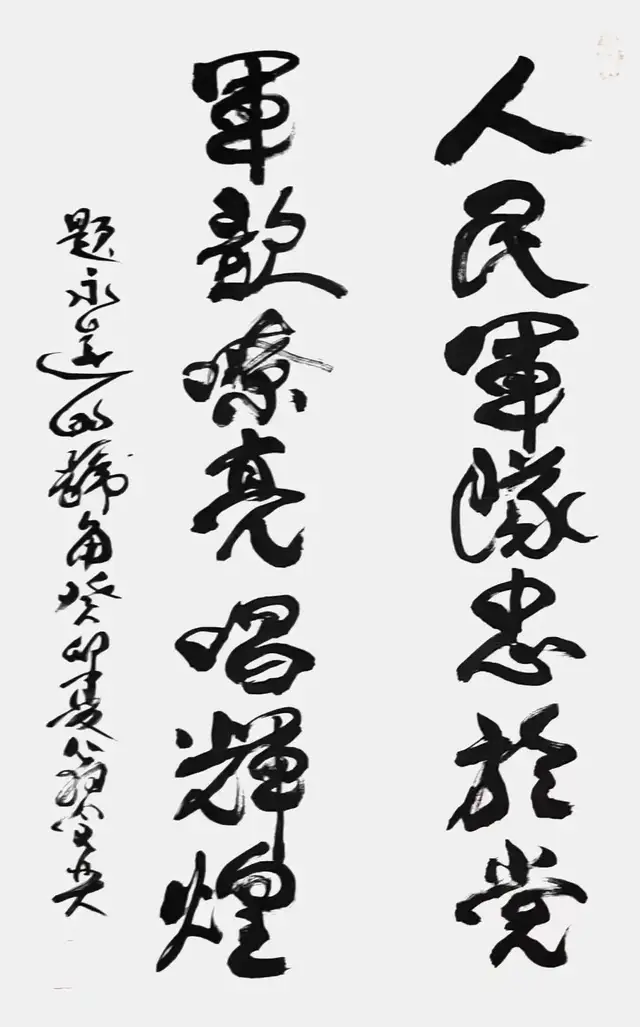 人民軍隊忠於党
軍歌嘹亮唱輝煌
題永遠的號角癸卯夏翁金央